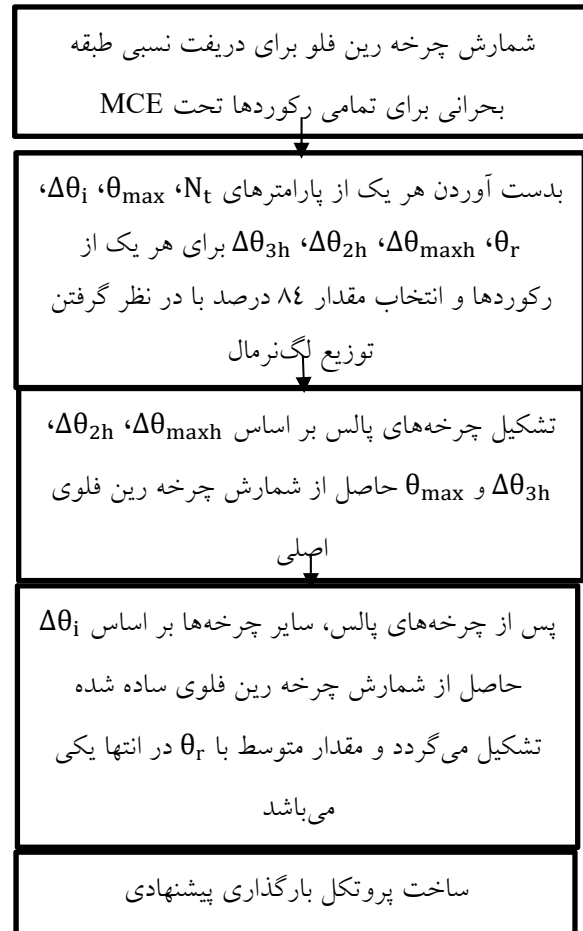 شمارش چرخه رین فلو برای دریفت نسبی طبقه
بحرانی برای تمامی رکوردها تحت MCE
بدست آوردن هر یک از پارامترهای Nt، θmax، Δθi،
θr، Δθmaxh، Δθ2h، Δθ3h برای هر یک از
رکوردها و انتخاب مقدار ٨٤ درصد با در نظر گرفتن
توزیع لگ‌نرمال
تشکیل چرخه‌های پالس بر اساس Δθmaxh، Δθ2h،
Δθ3h و θmax حاصل از شمارش چرخه رین فلوی
اصلی
پس از چرخه‌های پالس، سایر چرخه‌ها بر اساس Δθi
حاصل از شمارش چرخه رین فلوی ساده شده
تشکیل می‌گردد و مقدار متوسط با θr در انتها یکی
می‌باشد
ساخت پروتکل بارگذاری پیشنهادی